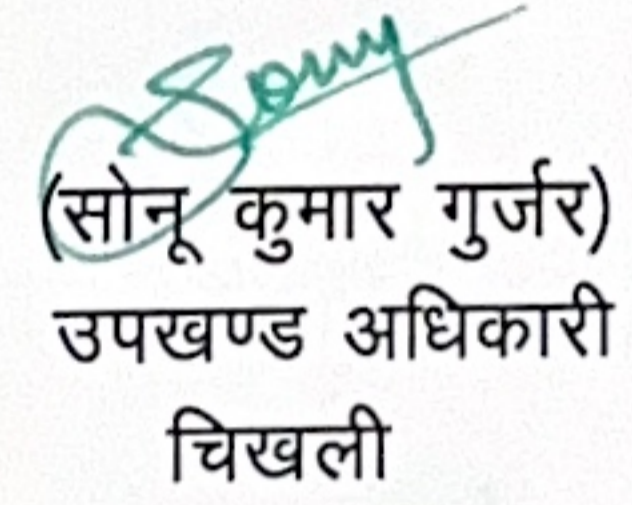 (सोनू कुमार गुर्जर)
उपखण्ड अधिकारी
चिखली